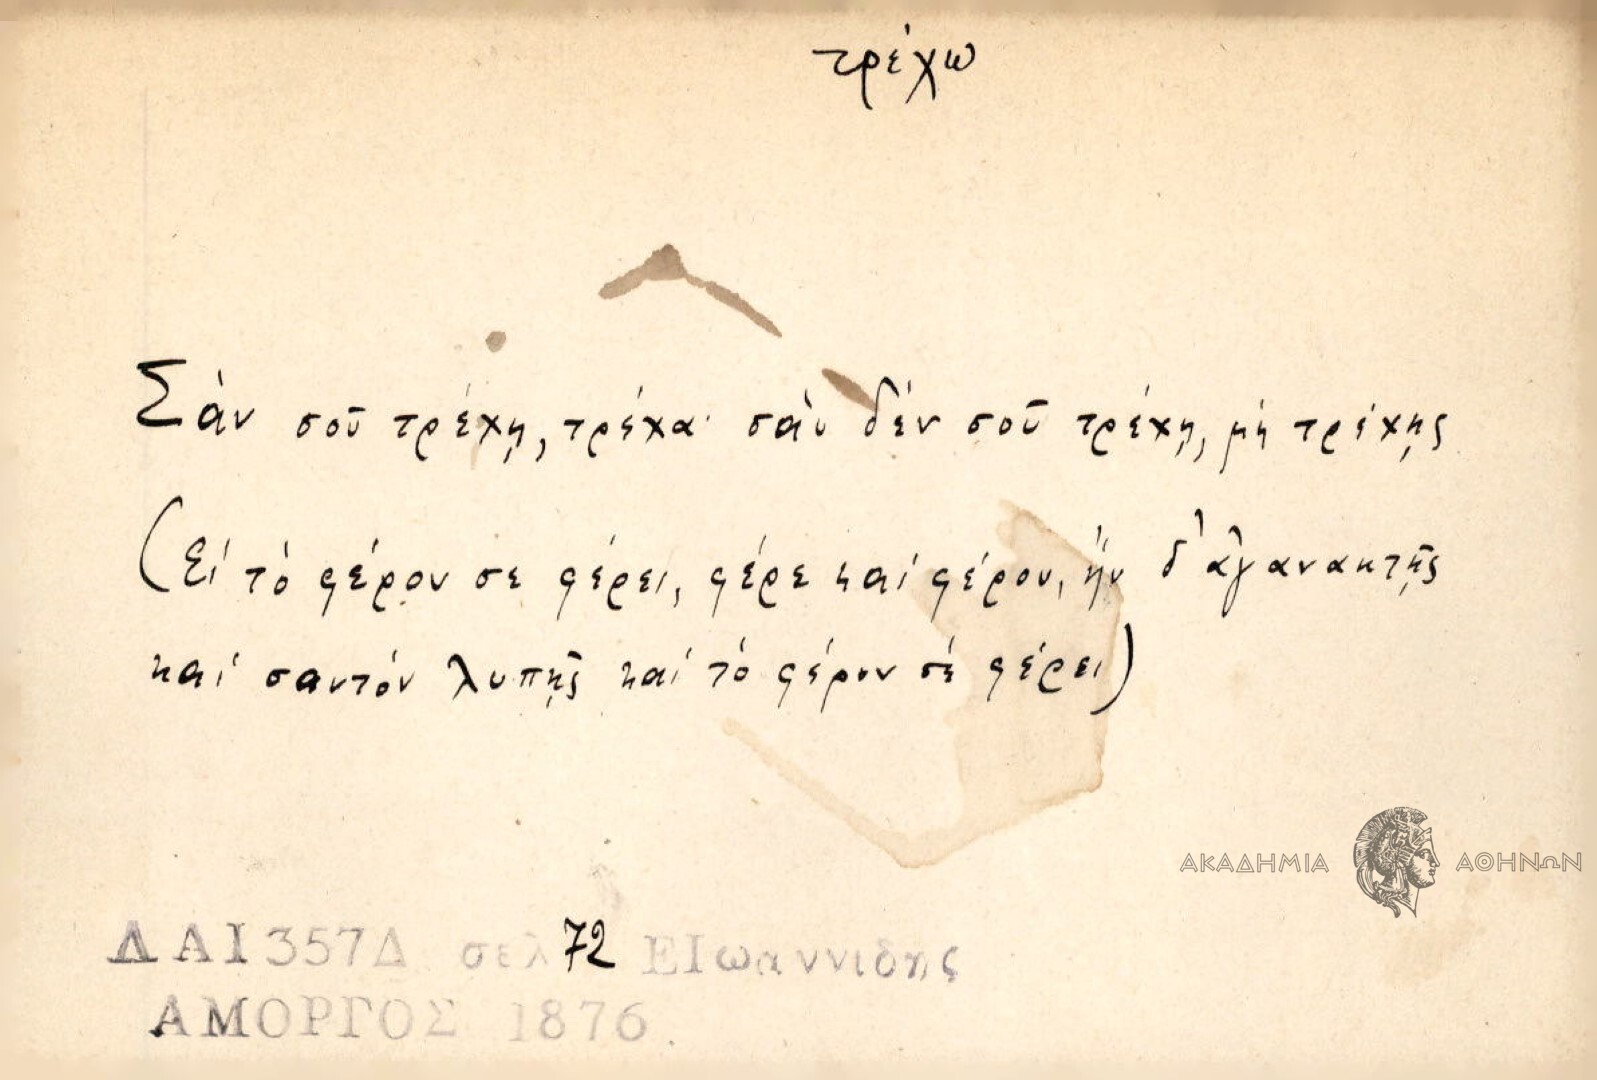 τρέχω
Σὰν σοῦ τρέχῃ, τρέχα· σὰν δὲν σοῦ τρέχῃ, μὴ τρέχῃς
(Εἰ τὸ φέρον σε φέρει, φέρε καὶ φέρου, ἢν δ' ἀγανακτῇς
καὶ σαυτὸν λυπῇς καὶ τὸ φέρον σὲ φέρει)
ΑΚΑΔΗΜΙΑ ΑΘΗΝΩΝ
ΛΑΙ357Δ σελ 72 ΕΙωαννιδης
ΑΜΟΡΓΟΣ 1876